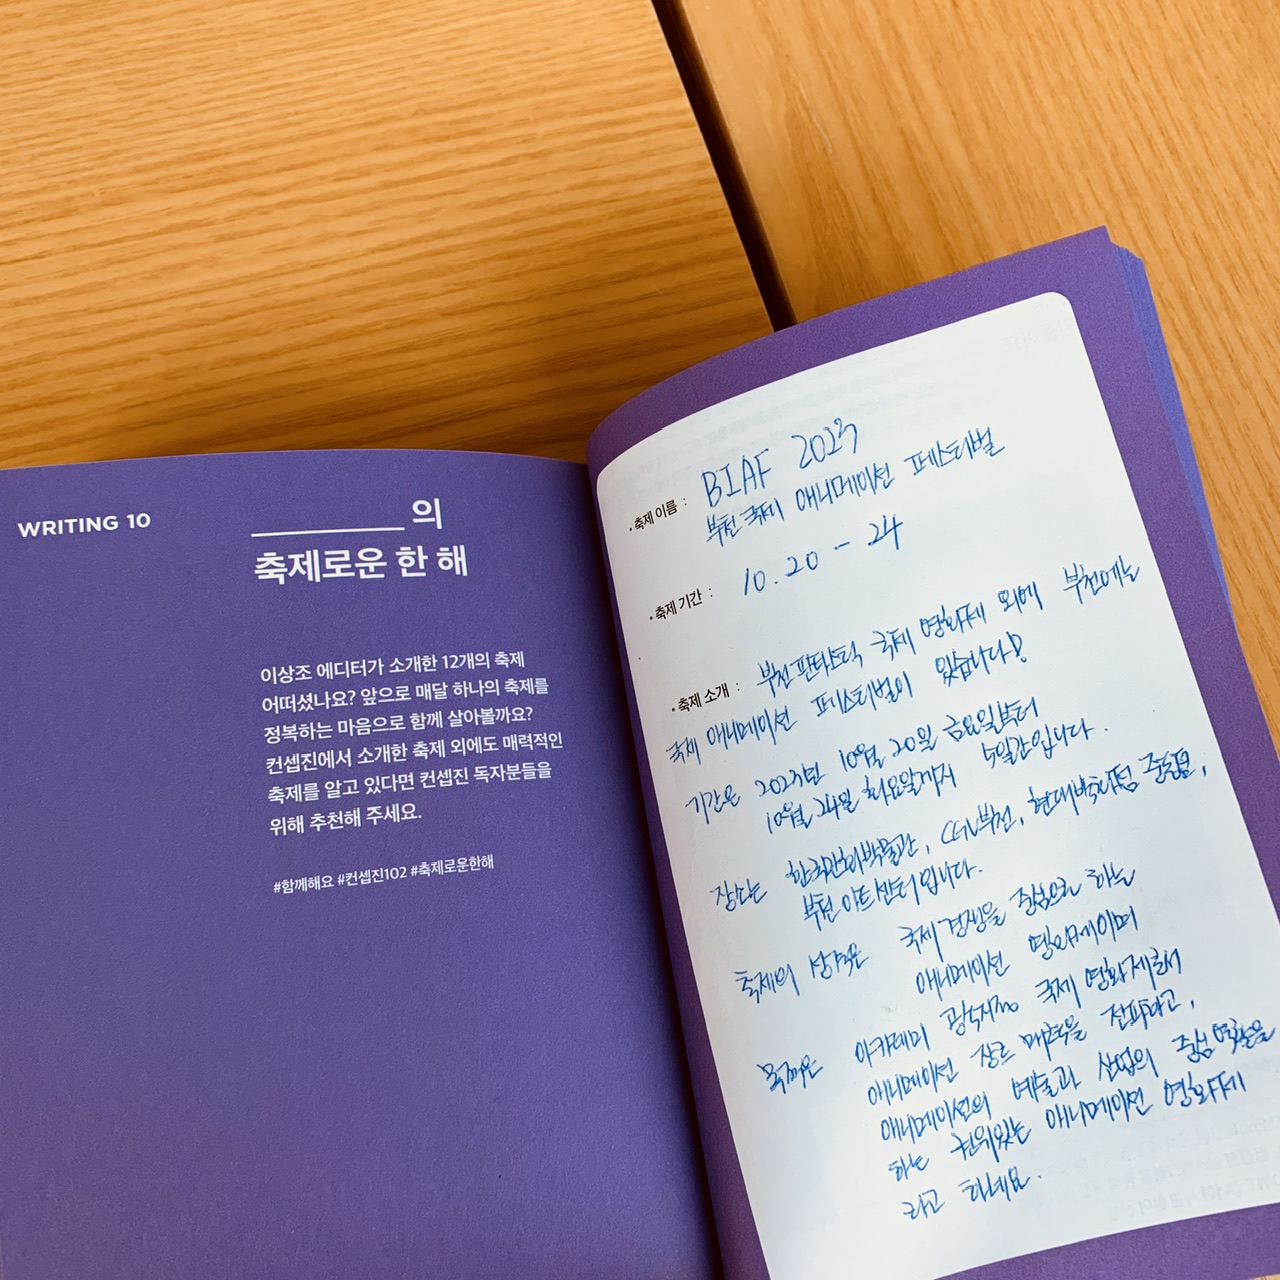 WRITING 10
______의
축제로운 한 해
이상조 에디터가 소개한 12개의 축제
어떠셨나요? 앞으로 매달 하나의 축제를
정복하는 마음으로 함께 살아볼까요?
컨셉진에서 소개한 축제 외에도 매력적인
축제를 알고 있다면 컨셉진 독자분들을
위해 추천해 주세요.
#함께해요 #컨셉진102 #축제로운한해
• 축제 이름 : BIAF 2023
부천 국제 애니메이션 페스티벌
• 축제 기간 : 10.20 - 24
• 축제 소개 : 부천 판타스틱 국제 영화제 외에 부천에는
국제 애니메이션 페스티벌이 있습니다!
기간은 2023년 10월 20일 금요일부터
10월 24일 화요일까지 5일간입니다.
장소는 한국만화박물관, CGV부천, 현대백화점 중동점,
부천아트센터입니다.
축제의 성격은 국제경쟁을 중심으로 하는
애니메이션 영화제이며
목적은 아카데미 공식지정 국제 영화제로서
애니메이션 장르 매력을 전파하고,
애니메이션의 예술과 산업의 중심 역할을
하는 권위있는 애니메이션 영화제
라고 하네요.